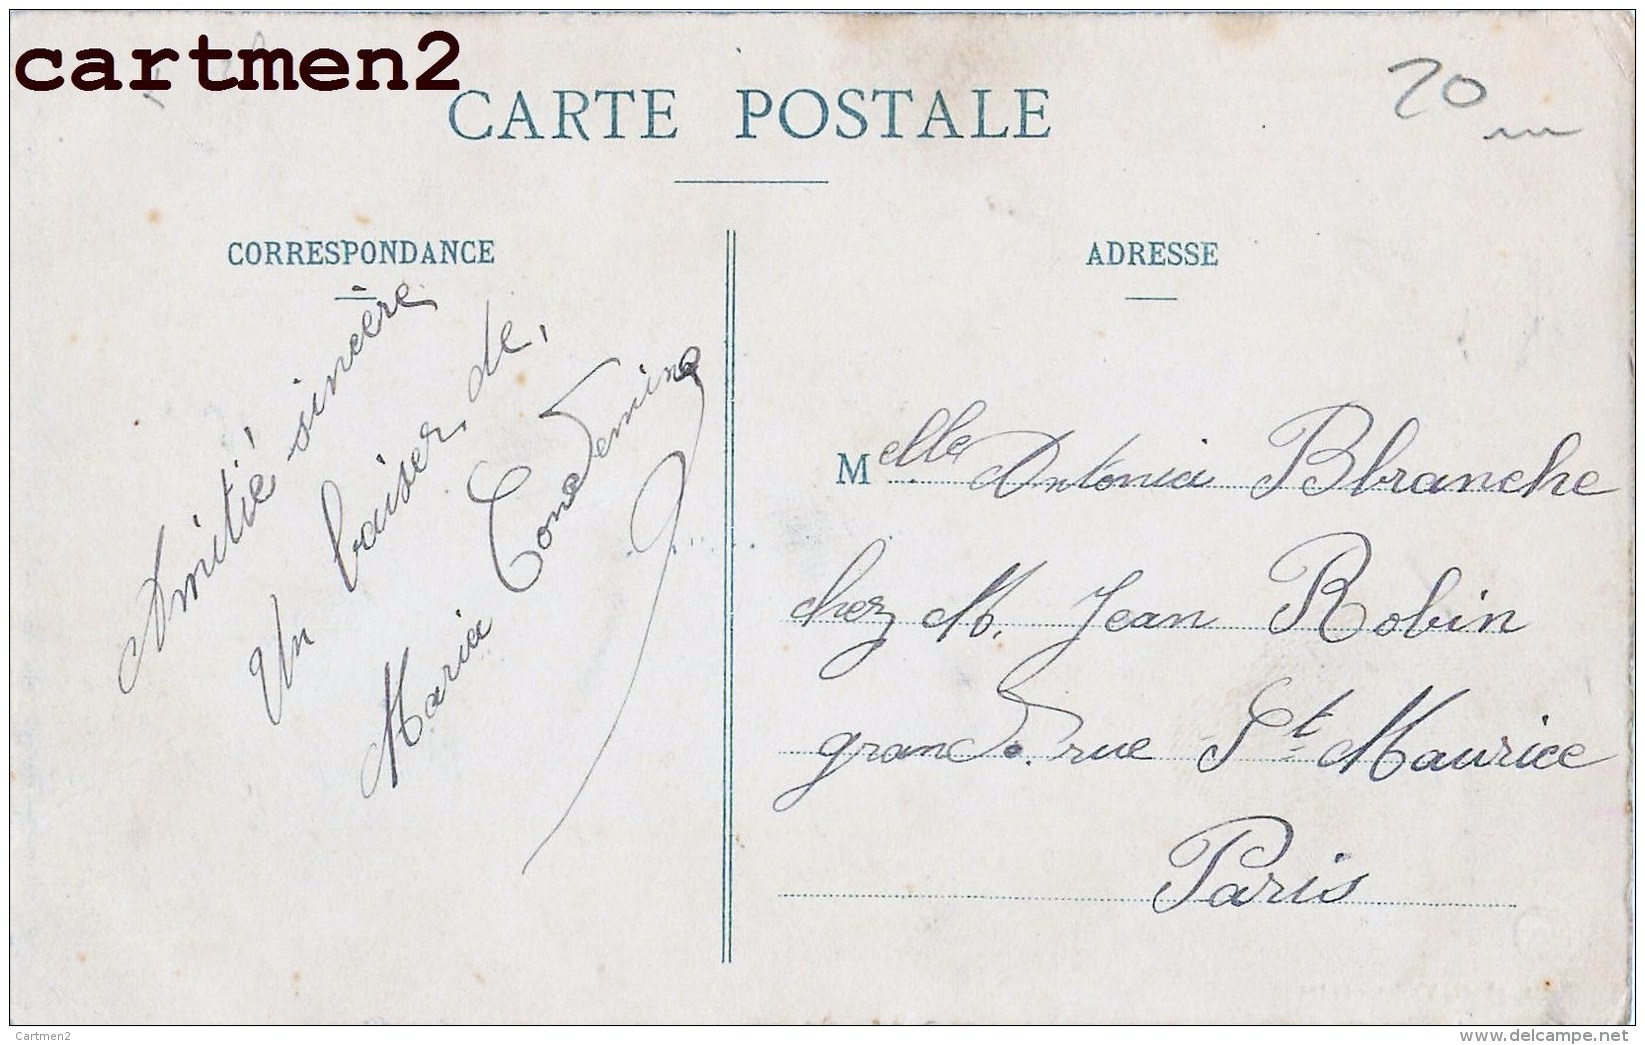 cartmen2
CARTE POSTALE
20
CORRESPONDANCE
Amitié sincère
Un baiser de,
Maria Condemine
ADRESSE
Melle Antonia Blranche
chez M. Jean Robin
grand. rue St Maurice
Paris
Cartmen2
delcampe.net